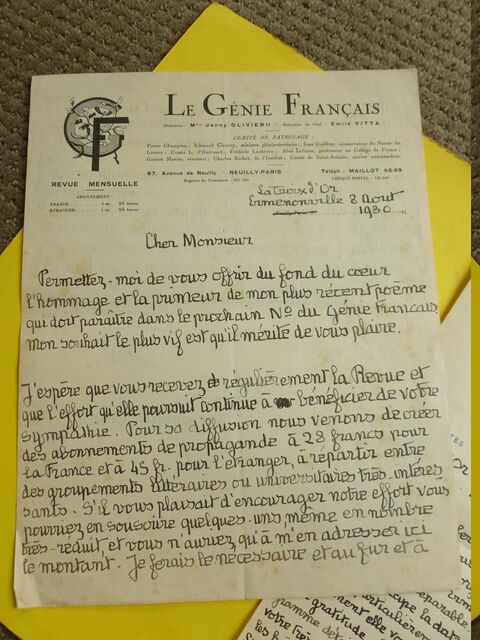 LE GÉNIE FRANÇAIS
Directrice : Mme Jenny OLIVIERO - Rédacteur en Chef : Emile VITTA
COMITÉ DE PATRONAGE :
Pierre Champion ; Edouard Clavery, ministre plénipotentiaire ; Jean Guiffrey, conservateur du Musée du
Louvre ; Comte L. d'Harcourt ; Frédéric Lachèvre ; Abel Lefranc, professeur au Collège de France ;
Gaston Menier, sénateur ; Charles Richet, de l'Institut ; Comte de Saint-Aulaire, ancien ambassadeur.
GF
REVUE MENSUELLE
ABONNEMENT :
FRANCE 1 an
ETRANGER 1 an
87, Avenue de Neuilly - NEUILLY-PARIS
Téléph : MAILLOT 05.99
Registre du Commerce :
CHÈQUE POSTAL :
La Croix d'Or
Ermenonville 8 Août
1930
Cher Monsieur
Permettez-moi de vous offrir du fond du cœur
l'hommage et la primeur de mon plus récent poème
qui doit paraître dans le prochain No du Génie Français.
Mon souhait le plus vif est qu'il mérite de vous plaire.
J'espère que vous recevez régulièrement la Revue et
que l'effort qu'elle poursuit continue à bénéficier de votre
sympathie. Pour sa diffusion nous venons de créer
des abonnements de propagande à 28 francs pour
la France et à 45 fr. pour l'étranger, à répartir entre
des groupements littéraires ou universitaires très intéres
sants. S'il vous plaisait d'encourager notre effort vous
pourriez en souscrire quelques-uns, même en nombre
très-réduit, et vous n'auriez qu'à m'en adresser ici
le montant. Je ferais le nécessaire et au fur et à